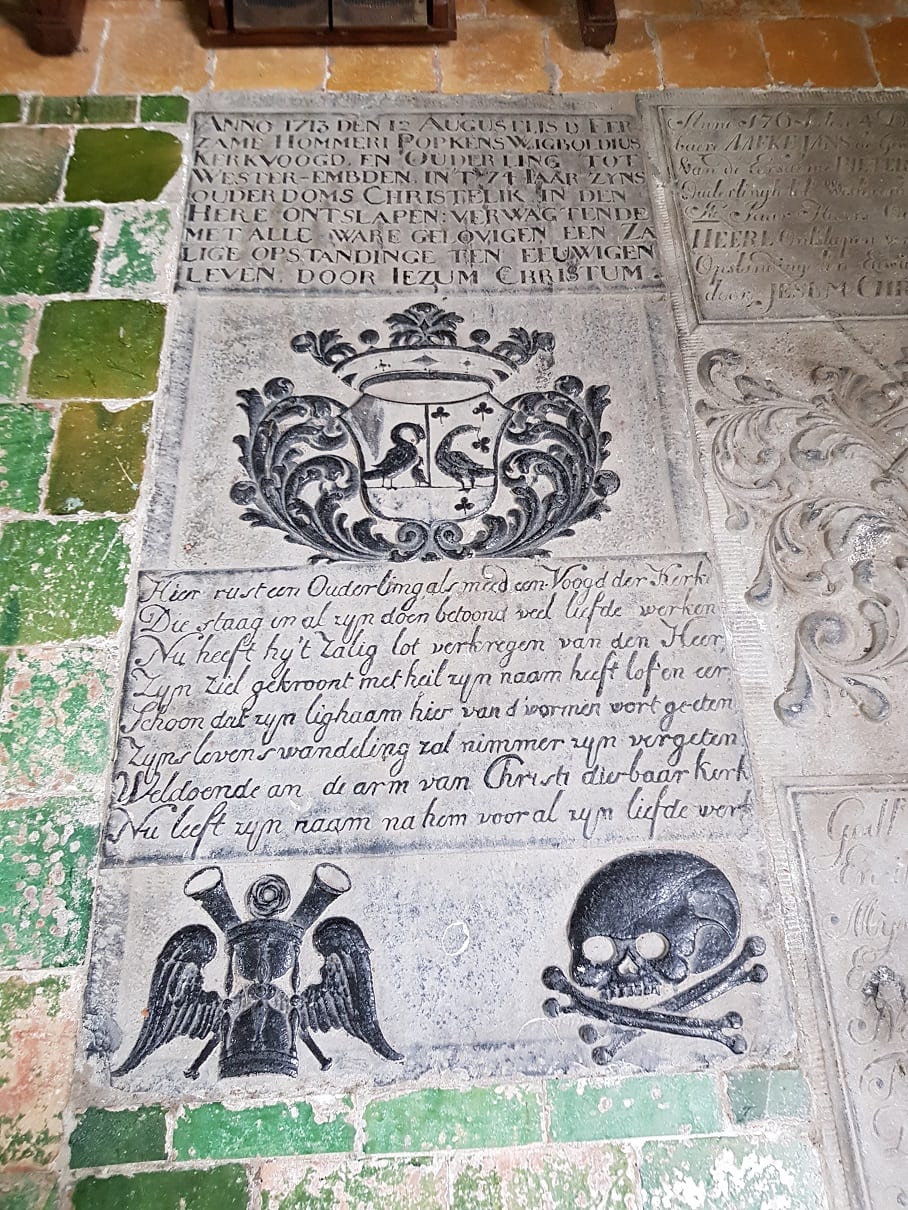 ANNO 1713 DEN 12 AUGUSTUS IS D' EER
ZAME HOMMERI POPKENS WIGBOLDIUS
KERKVOOGD, EN OUDERLING TOT
WESTER-EMBDEN. IN'T 74 JAAR ZYNS
OUDERDOMS CHRISTELIK IN DEN
HERE ONTSLAPEN: VERWAGTENDE
MET ALLE WARE GELOVIGEN EEN ZA
LIGE OPSTANDINGE TEN EEUWIGEN
LEVEN. DOOR IEZUM CHRISTUM.
Hier rust een Ouderling als med een Voogd der Kerk
Die staag in al zyn doen betoond veel liefde werken
Nu heeft hy't Zalig lot verkregen van den Heer,
Zyn ziel gekroont met heil zyn naam heeft lof en eer
Schoon dat zyn lighaam hier van d'wormen wort geeten
Zyns levens wandeling zal nimmer zyn vergeten
Weldoende aan de arm van Christi dierbaar Kerk
Nu leeft zyn naam na hem voor al zyn liefde werk
Anno 170
baere AAFKE JANS
van de
PIETER
HEERE Ontslapen
Opstanding
door JESUM CHR